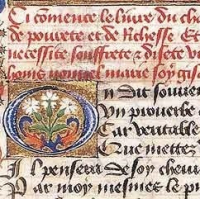 Ci comence le liure du che
de pourete et de Richesse Et
necessite souffrete & disete
mary soy gis
n dit souuen
n prouerbe
Car veritable
Que mettez
Il pensera de soy cheui
Par moy mesmes le p